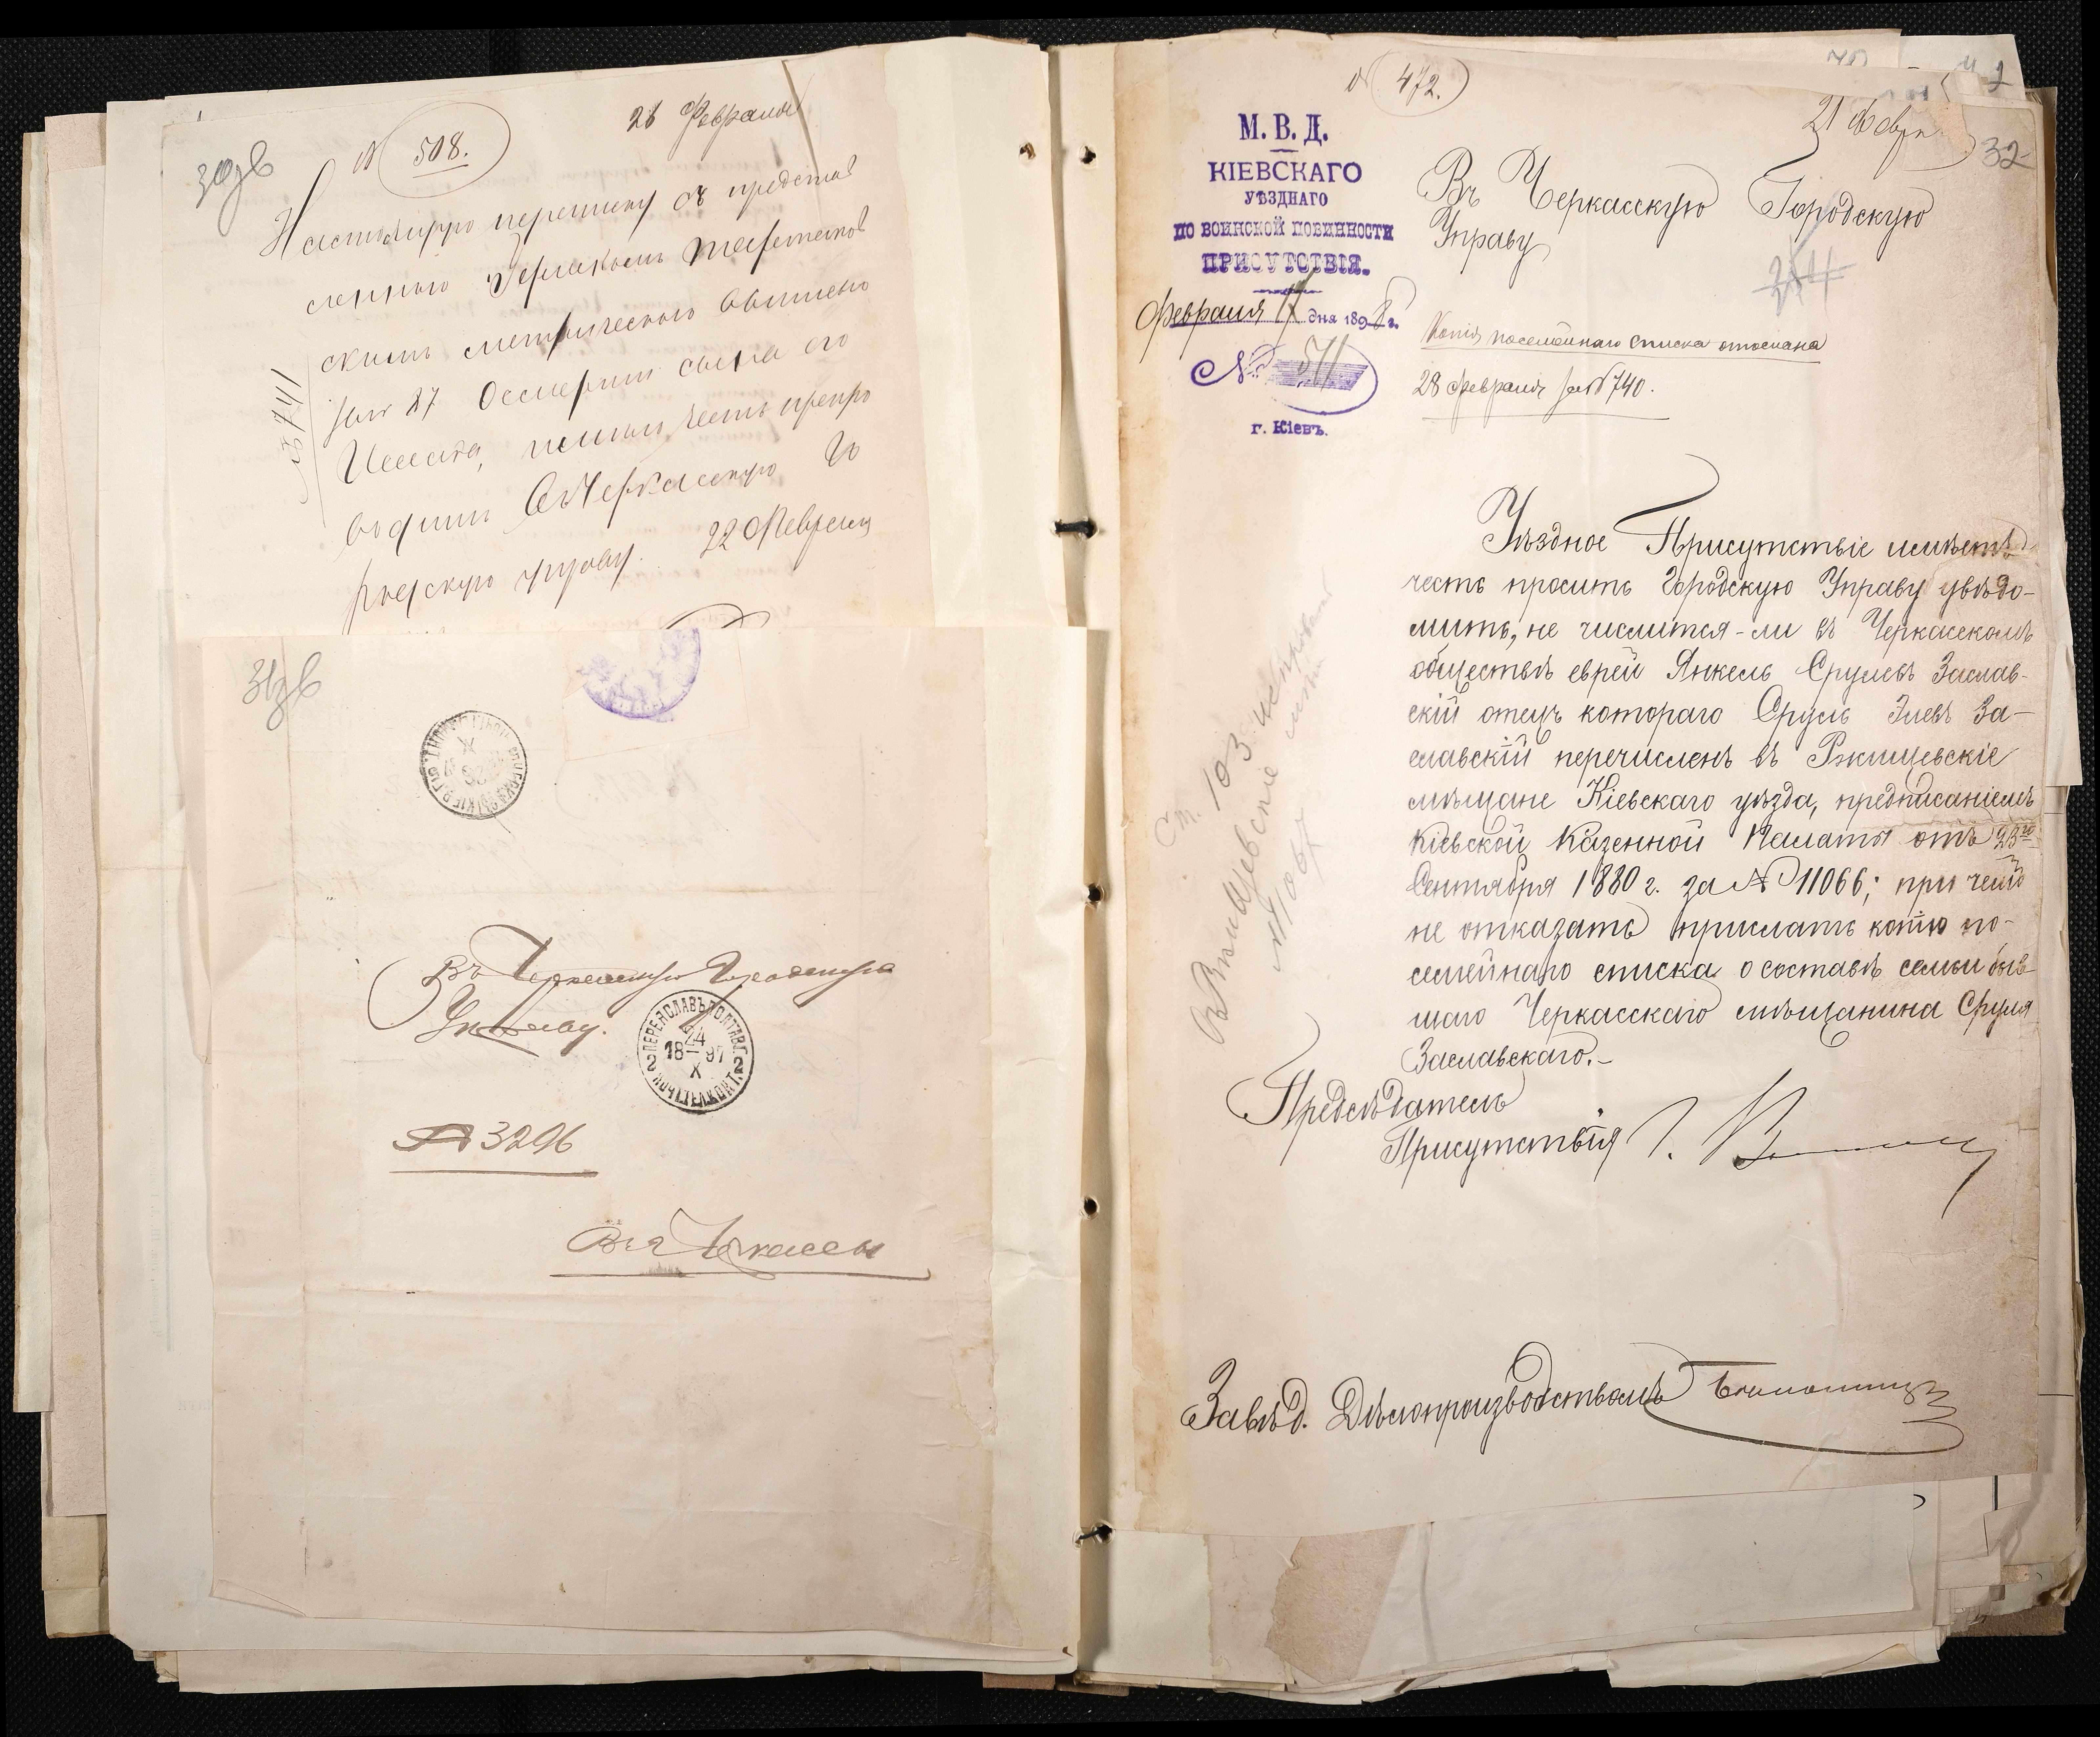 30зв
№ 508.
26 Февраля
Настоящую переписку съ представ
леннымъ
скимъ метрическимъ
за № 27 сына его
имею честь препро
водить въ Черкасскую Го
родскую управу. 22 Февраля
№ 741
31зв
Въ Черкасскую Городскую
Управу.
ПЕРЕЯСЛАВЪ ПОЛТАВ. Г.
24
18 97
X
2 ПОЧТ. ТЕЛ. КОНТ. 2
№ 3296
Въ г. Черкассы
№ 472.
21 Февр
32
М. В. Д.
КІЕВСКАГО
УѢЗДНАГО
ПО ВОИНСКОЙ ПОВИННОСТИ
ПРИСУТСТВІЯ.
Февраля 17 дня 1898 г.
№ 511
г. Кіевъ.
Въ Черкасскую Городскую
Управу
Копія посемейнаго списка отослана
28 Февраля за № 740.
Уѣздное Присутствіе имѣетъ
честь просить Городскую Управу увѣдо-
мить, не числится-ли въ Черкасскомъ
обществѣ еврей Янкель Срулевъ Заслав-
скій отецъ котораго Сруль Элевъ За-
славскій перечисленъ въ Ржищевскіе
мѣщане Кіевскаго уѣзда, предписаніемъ
Кіевской Казенной Палаты отъ 23го
Сентября 1880 г. за № 11066; при чемъ
не отказать прислать копію по-
семейнаго списка о составѣ семьи быв-
шаго Черкасскаго мѣщанина Сруля
Заславскаго.-
Предсѣдатель
Присутствія
Завѣд. Дѣлопроизводствомъ
Ст. 103
въ Ржищевскіе